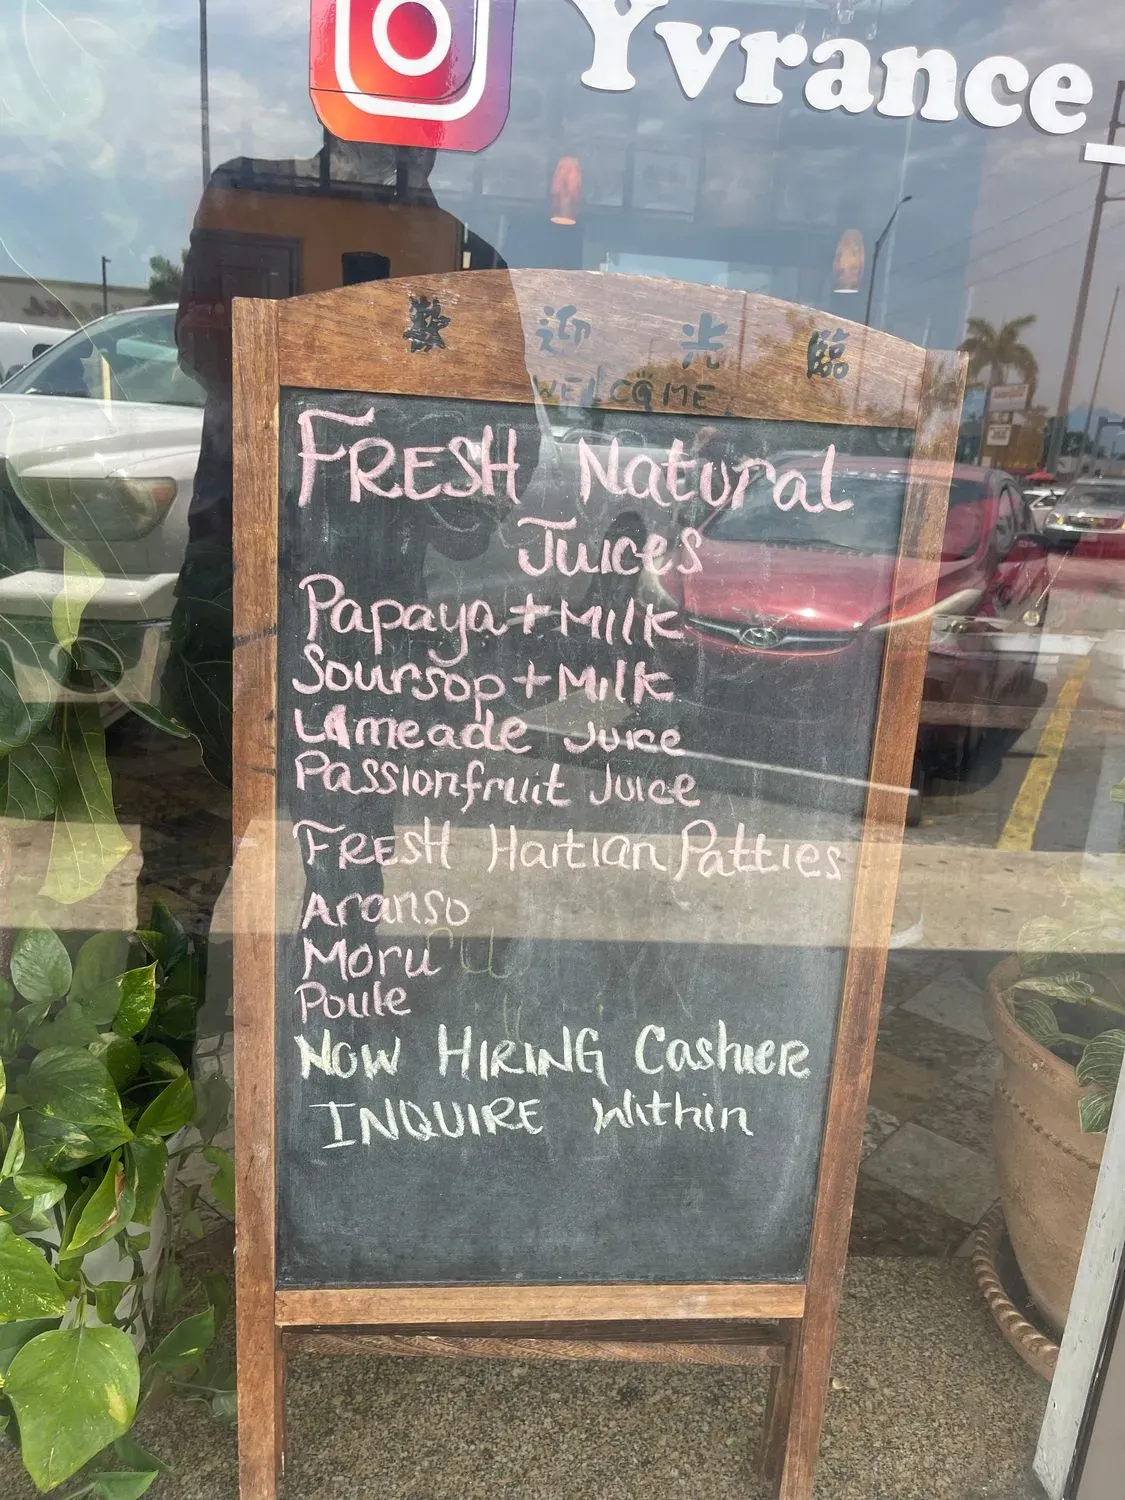 Yvrance_
歡迎光臨
WELCOME
FRESH Natural
Juices
Papaya + Milk
Soursop + Milk
Limeade Juice
Passionfruit Juice
FRESH Haitian Patties
Aranso
Moru
Poule
NOW HIRING Cashier
INQUIRE Within